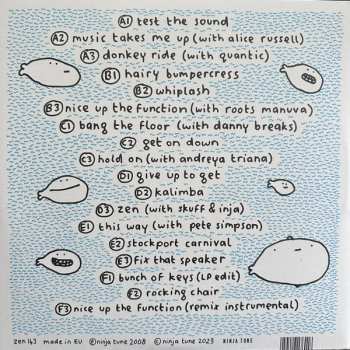 A1 test the sound
A2 music takes me up (with alice russell)
A3 donkey ride (with quantic)
B1 hairy bumpercress
B2 whiplash
B3 nice up the function (with roots manuva)
C1 bang the floor (with danny breaks)
C2 get on down
C3 hold on (with andreya triana)
D1 give up to get
D2 kalimba
D3 zen (with skuff & inja)
E1 this way (with pete simpson)
E2 stockport carnival
E3 fix that speaker
F1 bunch of keys (LP edit)
F2 rocking chair
F3 nice up the function (remix instrumental)
zen 143 made in EU ©ninja tune 2008 ©ninja tune 2023 NINJA TUNE